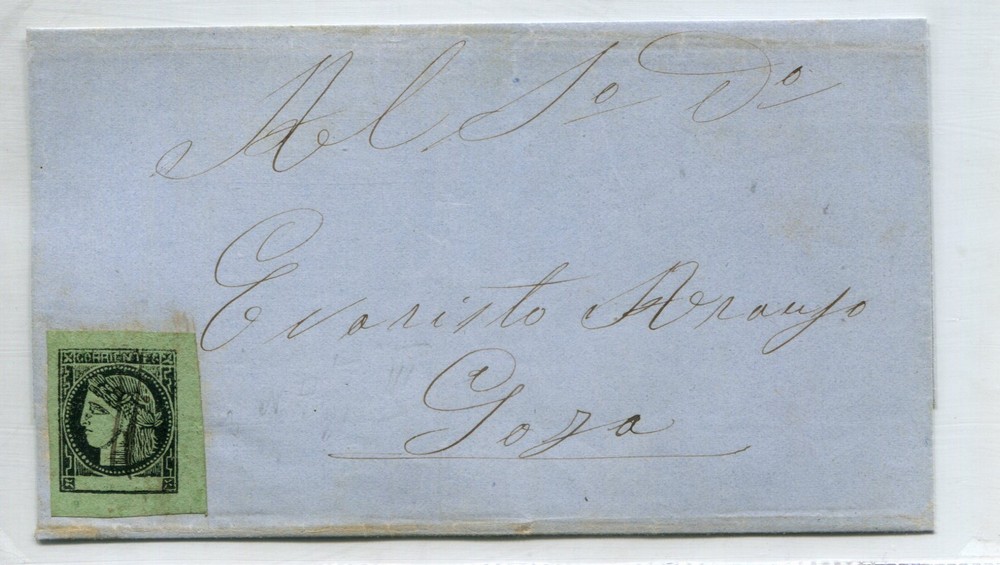 Al Sº Dº
Evaristo Araujo
Goya
CORRIENTES